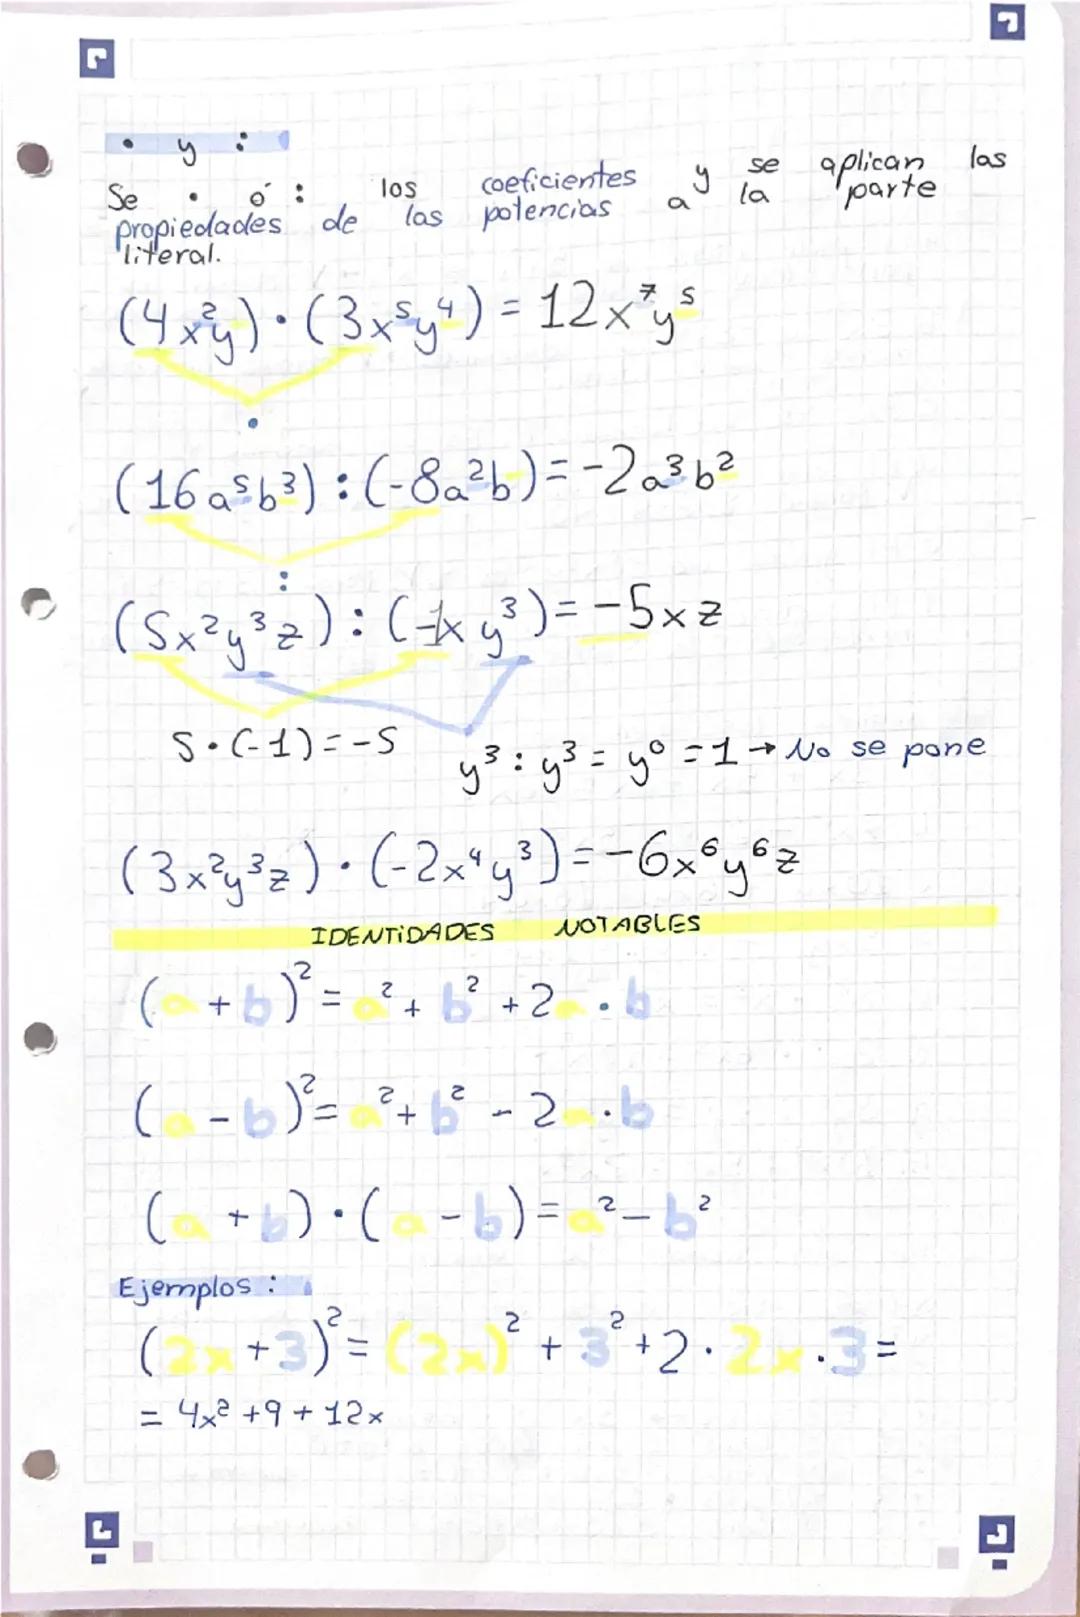 • y :
Se • ó : los coeficientes y se aplican las
propiedades de las potencias a la parte
literal.
(4x²y)·(3x⁵y⁴) = 12x⁷y⁵
•
(16a⁵b³) : (-8a²b) = -2a³b²
:
(5x²y³z) : (-1x y³) = -5xz
5·(-1) = -5 y³ : y³ = y⁰ = 1 → No se pone
(3x²y³z)·(-2x⁴y³) = -6x⁶y⁶z
IDENTIDADES NOTABLES
(a+b)² = a² + b² + 2a·b
(a-b)² = a² + b² - 2a·b
(a+b)·(a-b) = a² - b²
Ejemplos :
(2x+3)² = (2x)² + 3² + 2·2x·3 =
= 4x² + 9 + 12x